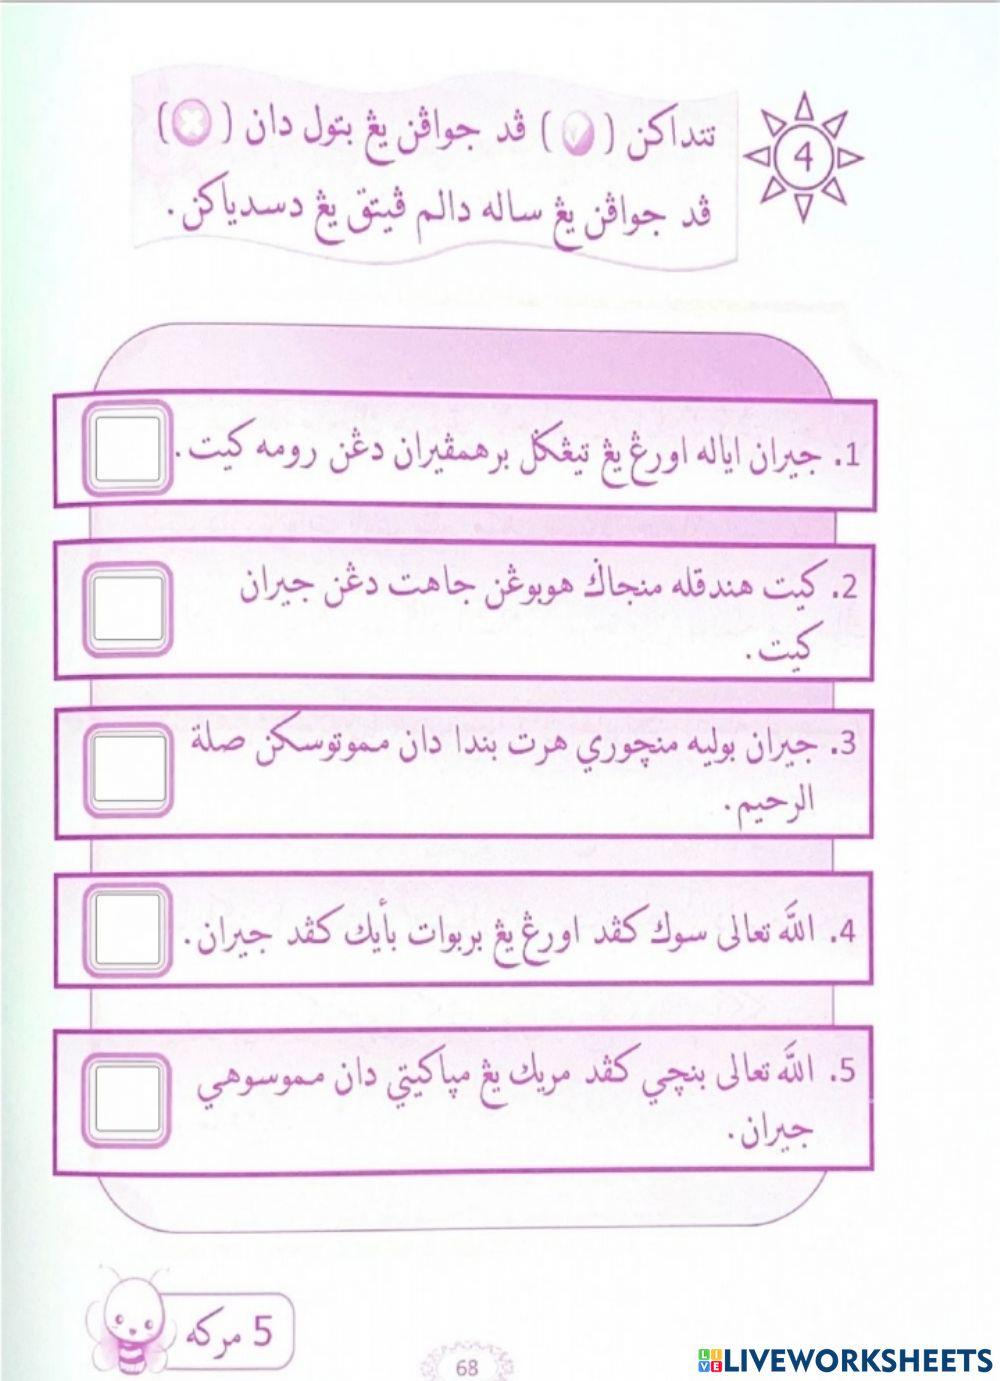 4
تنداکن ( ✓ ) ڤد جواڤن يڠ بتول دان ( ✗ )
ڤد جواڤن يڠ ساله دالم ڤيتق يڠ دسدياکن.
1. جيران اياله اورڠ يڠ تيڠݢل برهمڤيران دڠن رومه کيت.
2. کيت هندقله منجاڬ هوبوڠن جاهت دڠن جيران
کيت.
3. جيران بوليه منچوري هرت بندا دان مموتوسکن صلة
الرحيم.
4. اللّٰه تعالى سوك کڤد اورڠ يڠ بربوات بأيك کڤد جيران.
5. اللّٰه تعالى بنچي کڤد مريك يڠ مڽاکيتي دان مموسوهي
جيران.
5 مرکه
68
LIVEWORKSHEETS